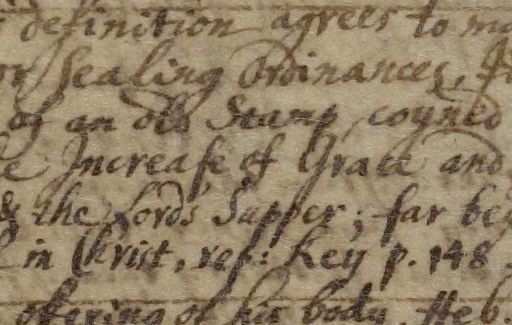 definition agrees to
Sealing Ordinances,
of an old Stamp, coyned
Increase of Grace and
the Lords Supper; far
in Christ, ref: Key p. 148
offering of his body. Heb.